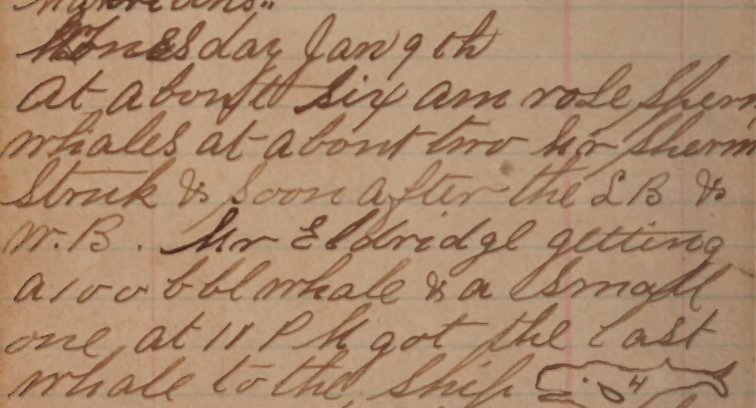 Wonesday Jan 9th
At about six am rose Sperm
whales at about two Mr Sherm
Struk & soon after the L B &
W. B. Mr Eldridge getting
a 100 bbl whale & a small
one at 11 P M got the last
whale to the ship